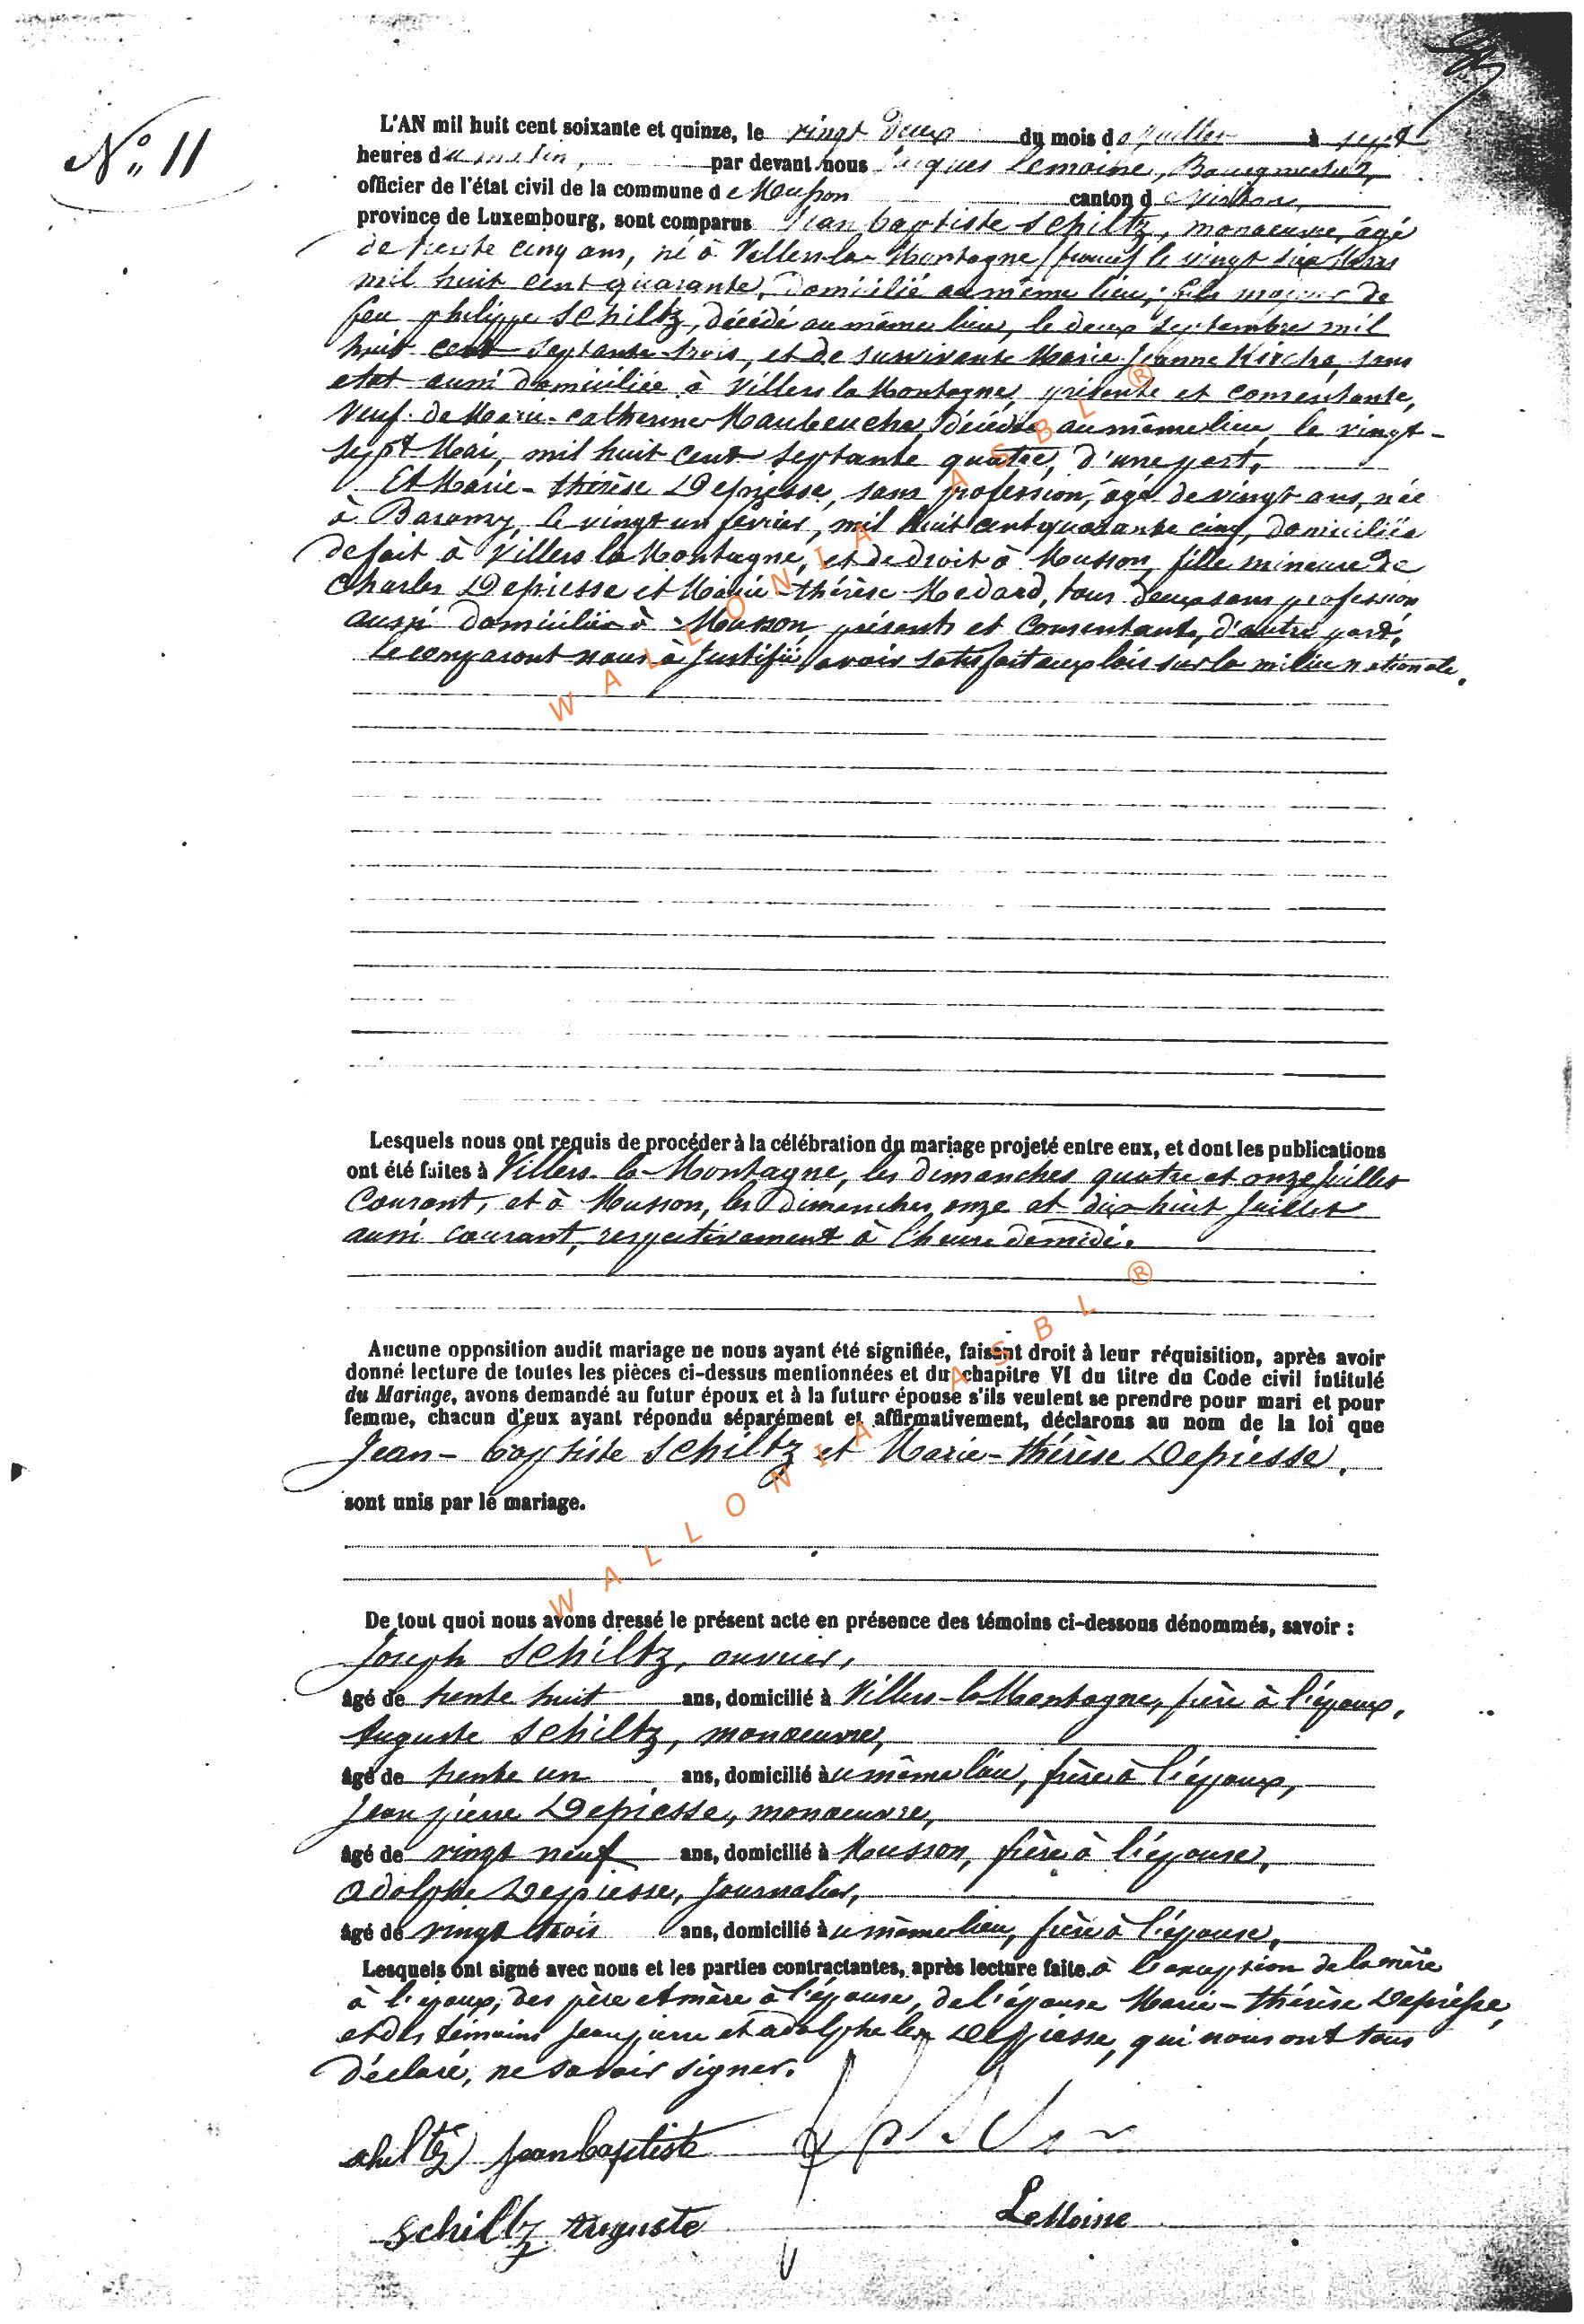 N° 11
L'AN mil huit cent soixante et quinze, le vingt deux du mois de juillet à sept
heures du matin, par devant nous Jacques Lemoine, Bourgmestre,
officier de l'état civil de la commune de Musson canton de Virton,
province de Luxembourg, sont comparus Jean baptiste Schiltz, manoeuvre, âgé
de trente cinq ans, né à Villers-la-Montagne (france) le vingt six Mars
mil huit cent quarante, domicilié au même lieu; fils majeur de
feu philippe Schiltz, décédé au même lieu, le deux septembre mil
huit cent septante trois, et de survivante Marie Jeanne Kirche, sans
etat aussi domiciliée à Villers la Montagne, présente et consentante,
Veuf de Marie-Catherine Maubeuche, décédée au même lieu, le vingt-
sept Mai, mil huit cent septante quatre, d'une part,
Et Marie-thérèse Depiesse, sans profession, âgé de vingt ans, née
à Baranzy, le vingt un février, mil huit cent quarante cinq, domiciliée
de fait à Villers la Montagne, et de droit à Musson, fille mineure de
Charles Depiesse et Marie-thérèse Medard, tous deux sans profession
aussi domiciliés à Musson, présents et consentants, d'autre part,
Le comparant nous à justifié avoir satisfait aux lois sur la milice nationale.
Lesquels nous ont requis de procéder à la célébration du mariage projeté entre eux, et dont les publications
ont été faites à Villers-la-Montagne, les dimanches quatre et onze juillet
courant, et à Musson, les dimanches onze et dix huit juillet
aussi courant, respectivement à l'heure de midi.
Aucune opposition audit mariage ne nous ayant été signifiée, faisant droit à leur réquisition, après avoir
donné lecture de toutes les pièces ci-dessus mentionnées et du chapitre VI du titre du Code civil intitulé
du Mariage, avons demandé au futur époux et à la future épouse s'ils veulent se prendre pour mari et pour
femme, chacun d'eux ayant répondu séparément et affirmativement, déclarons au nom de la loi que
Jean-baptiste Schiltz et Marie-thérèse Depiesse.
sont unis par le mariage.
De tout quoi nous avons dressé le présent acte en présence des témoins ci-dessous dénommés, savoir :
Joseph Schiltz, ouvrier,
âgé de trente huit ans, domicilié à Villers-la-Montagne, frère à l'époux,
Auguste Schiltz, manoeuvre,
âgé de trente un ans, domicilié au même lieu, frère à l'époux,
Jean pierre Depiesse, manoeuvre,
âgé de vingt neuf ans, domicilié à Musson, frère à l'épouse,
Adolphe Depiesse, Journalier,
âgé de vingt trois ans, domicilié au même lieu, frère à l'épouse,
Lesquels ont signé avec nous et les parties contractantes, après lecture faite à l'exception de la mère
à l'époux, des père et mère à l'épouse, de l'épouse Marie-thérèse Depiesse,
et des témoins Jean pierre et adolphe les Depiesse, qui nous ont tous
déclaré, ne savoir signer.
chiltz jean baptiste
schiltz Auguste
LeMoine
WALLONIA ASBL ®
WALLONIA ASBL ®